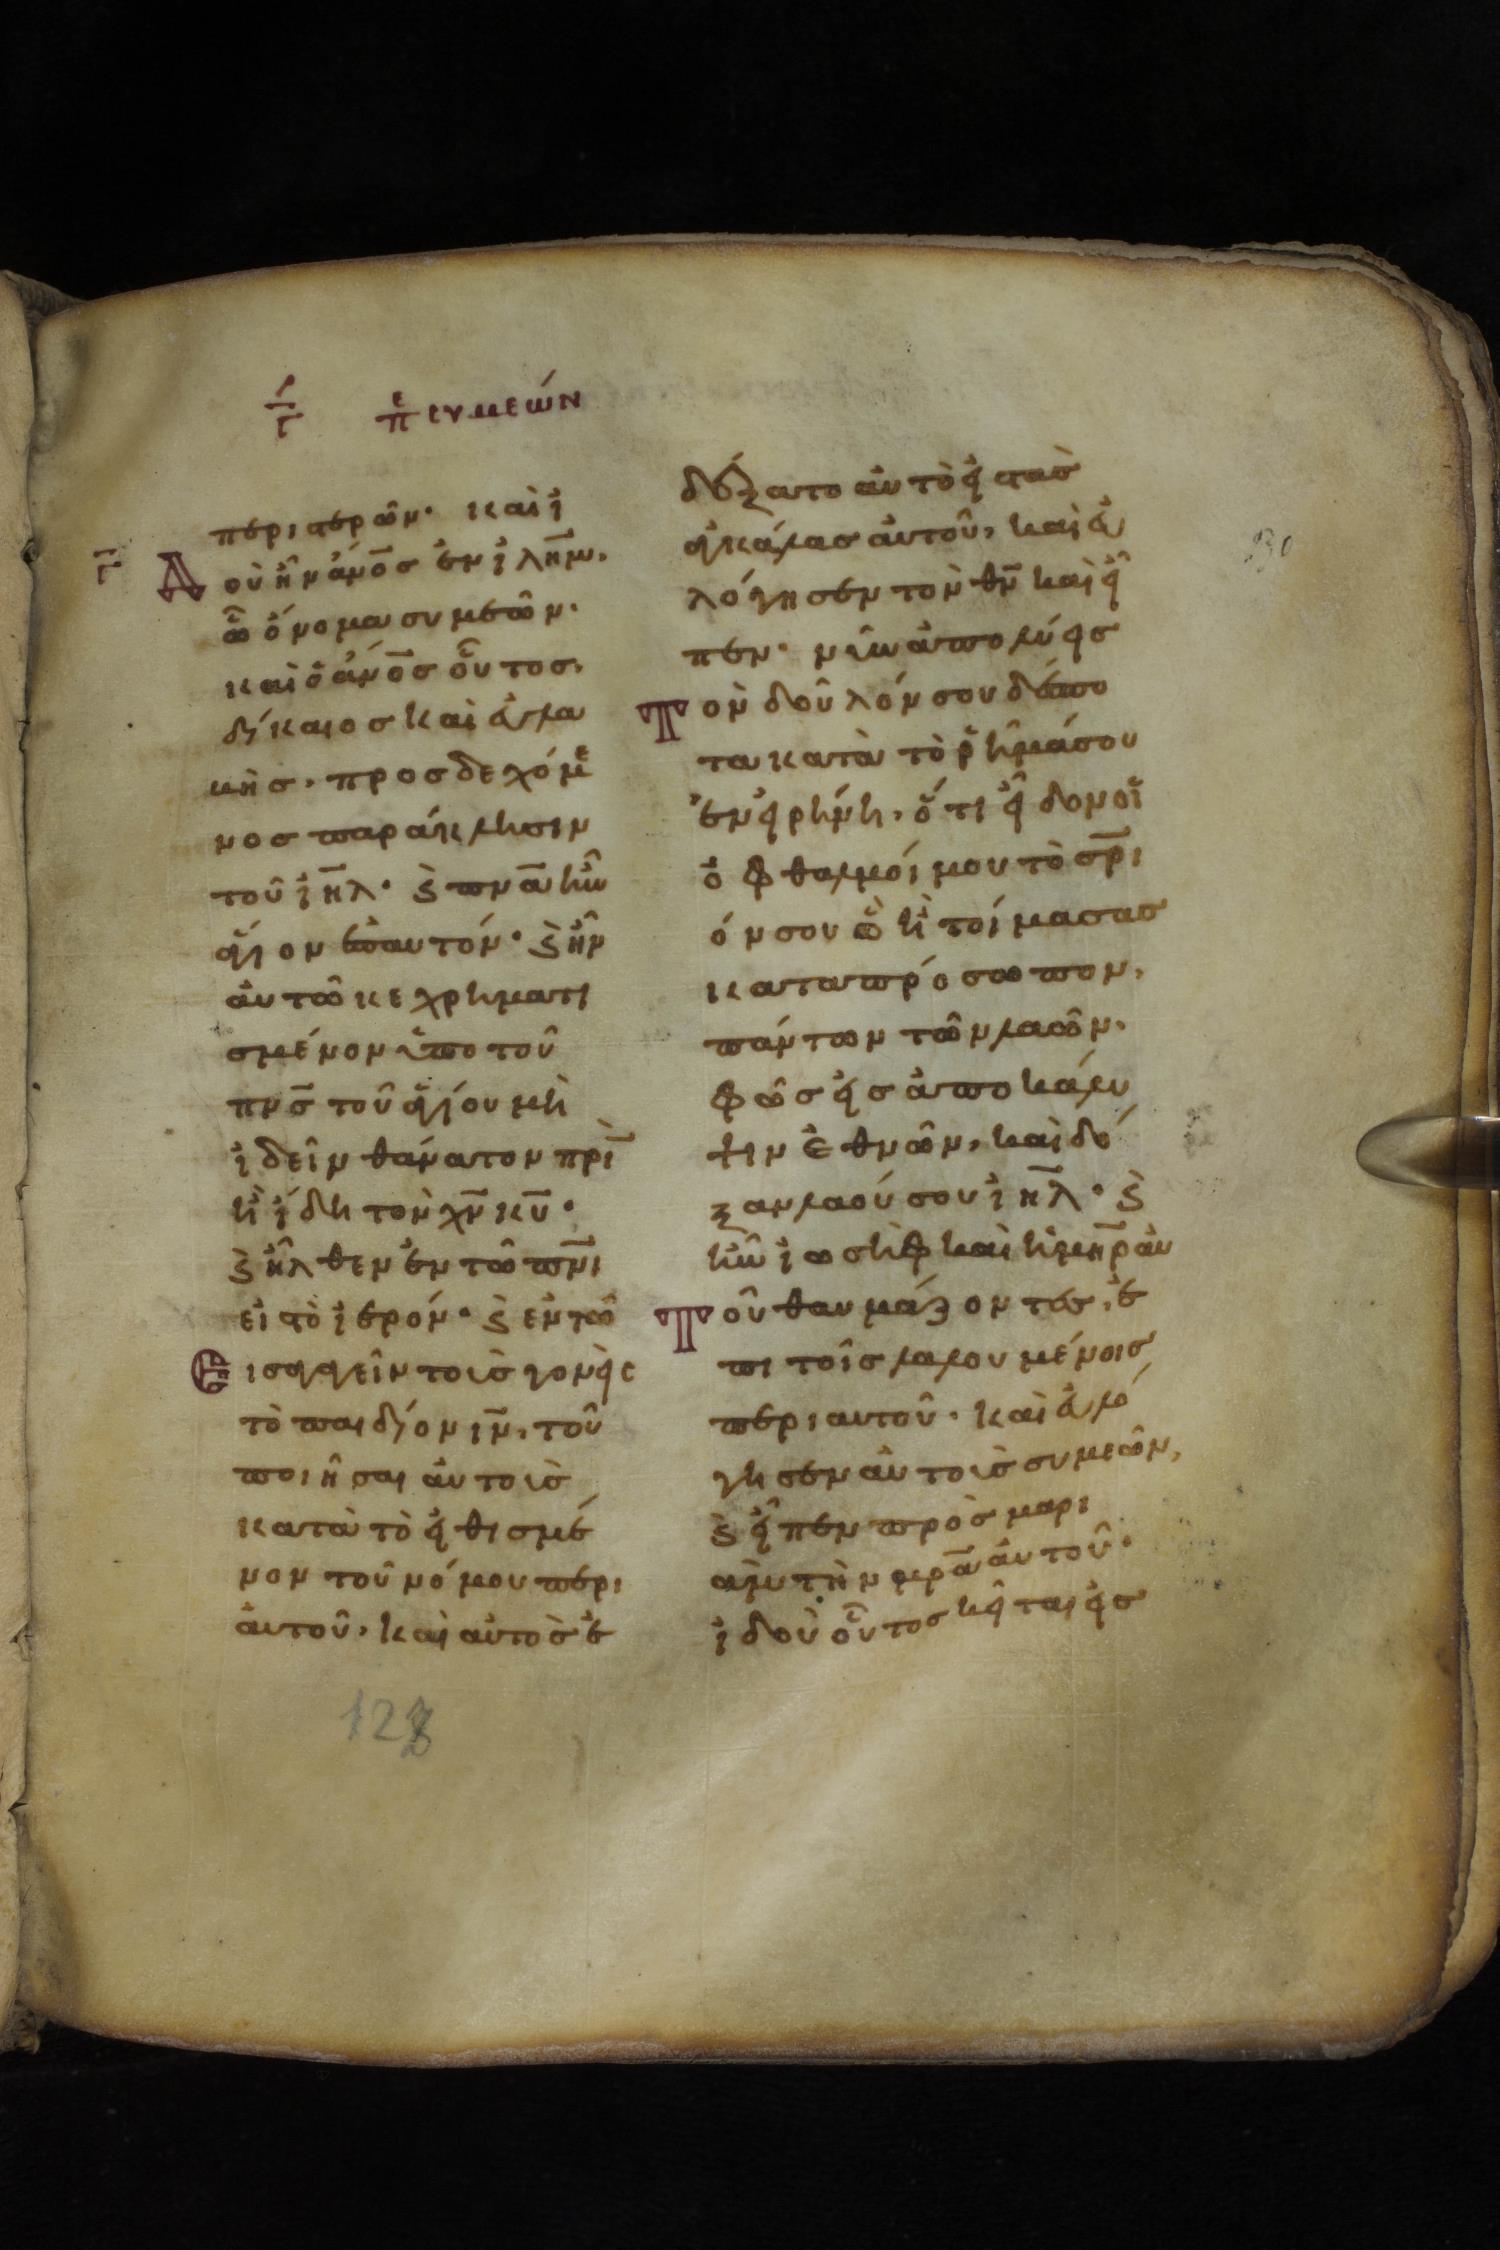 Γ πε συμεών
περιστερῶν· καὶ ἰ
Γ Δού ἦν ἀν̅ο̅ς ἐν ἰλη̅μ,
ὧ ὄνομα συμεῶν·
καὶ ὁ ἀν̅ο̅ς οὗτος,
δίκαιος καὶ εὐλα
μὴς, προσδεχόμε
νος παράκλησιν
τοῦ ἰη̅λ· ϗ πν̅α ἦν
ἅγιον ἐπαυτόν· ϗ ἦν
αὐτῶ κεχρηματι
σμένον ὑπο τοῦ
πν̅ς τοῦ ἁγίου μὴ
ἰδεῖν θάνατον πρὶ̅
ἢ ἴδη τὸν χ̅ν κ̅υ·
ϗ ἦλθεν ἐν τῶ πν̅ι
εἰ τὸ ἱερόν· ϗ ἐν τῶ
Εἰσαγαγεῖν τοὺς γονεῖς
τὸ παιδίον ι̅ν, τοῦ
ποιῆσαι αὐτοὺς
κατὰ τὸ εἰθισμέ
νον τοῦ νόμου περι
αὐτοῦ, καὶ αὐτὸς ἐ
δέξατο αὐτὸ εἰς τὰς
ἀγκάλας αὐτοῦ, καὶ εὐ
λόγησεν τὸν θ̅ν καὶ εἶ
πεν· νῦν ἀπολύεις
Τὸν δοῦλόν σου δέσπο
τα κατὰ τὸ ῥῆμά σου
ἐν εἰρήνη, ὅτι εἶδον οἱ
ὀφθαλμοί μου τὸ σ̅ρι
όν σου ὃ ἡτοίμασας
κατα πρόσωπον,
πάντων τῶν λαῶν·
φῶς εἰς ἀποκάλυ
ψιν ἐθνῶν, καὶ δό
ξαν λαού σου ἰη̅λ· ϗ
ἦν ἰωσὴφ καὶ ἡ μη̅ρ αὐ
Τοῦ θαυμάζοντες, ἐ
πι τοῖς λαλουμένοις
περι αυτοῦ· καὶ εὐλό
γησεν αὐτοὺς συμεῶν,
ϗ εἶπεν πρὸς μαρι
ὰμ τὴν μρ̅α αὐτοῦ·
ἰδοὺ οὗτος κεῖται εἰς
130
128